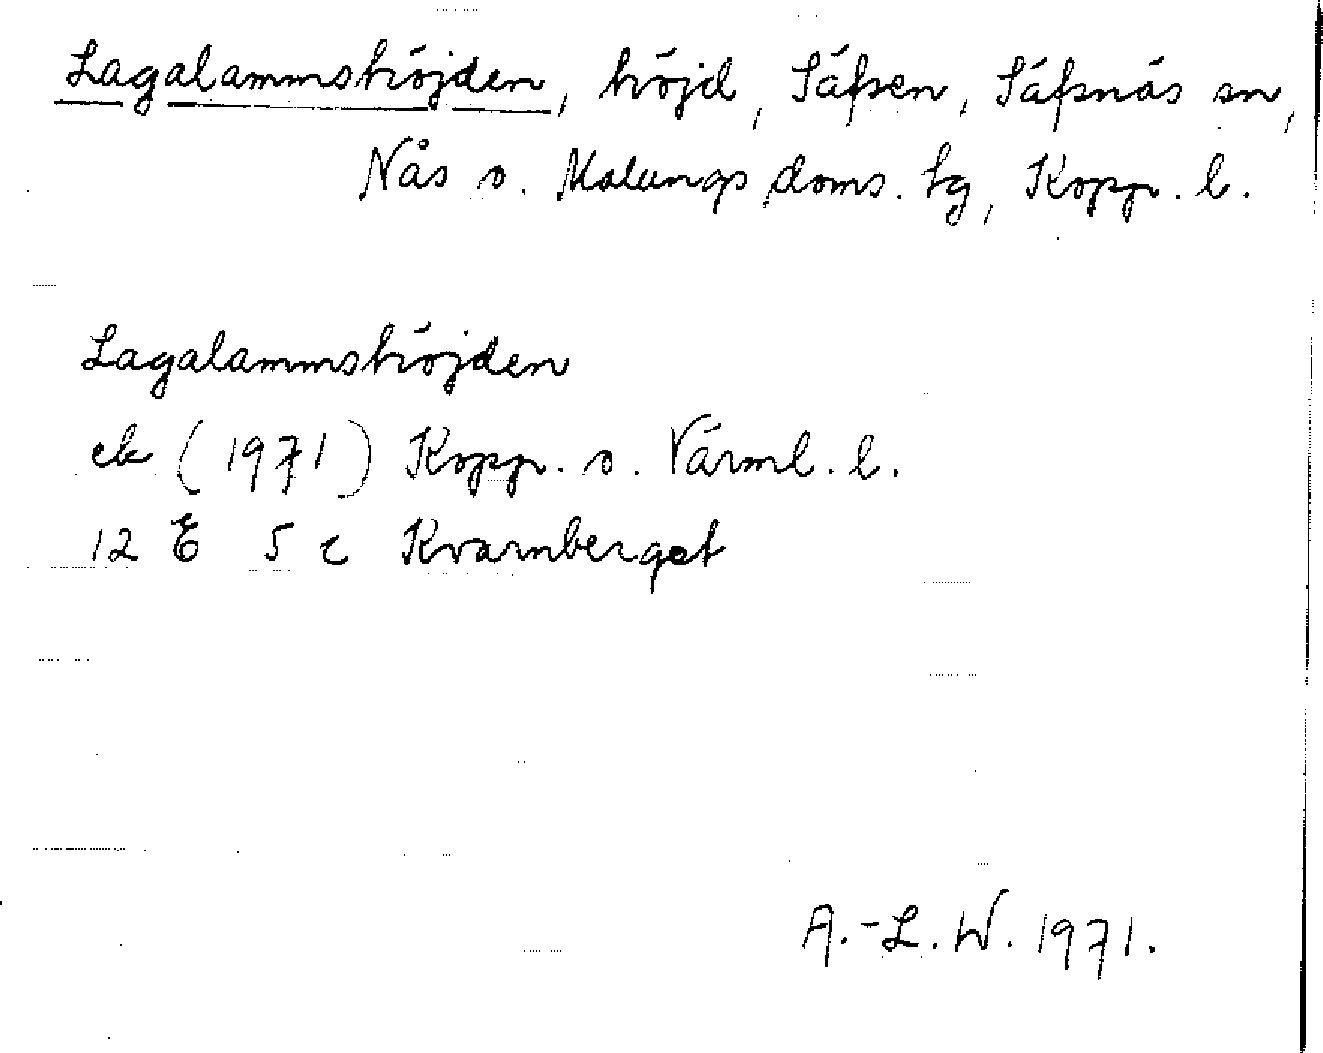 Lagalammshöjden, höjd, Säfsen, Säfsnäs sn,
Nås o. Malungs doms. tg, Kopp. l.
Lagalammshöjden
ek (1971) Kopp. o. Värml. l.
12 E 5 c Kvarnberget
A.-L. W. 1971.